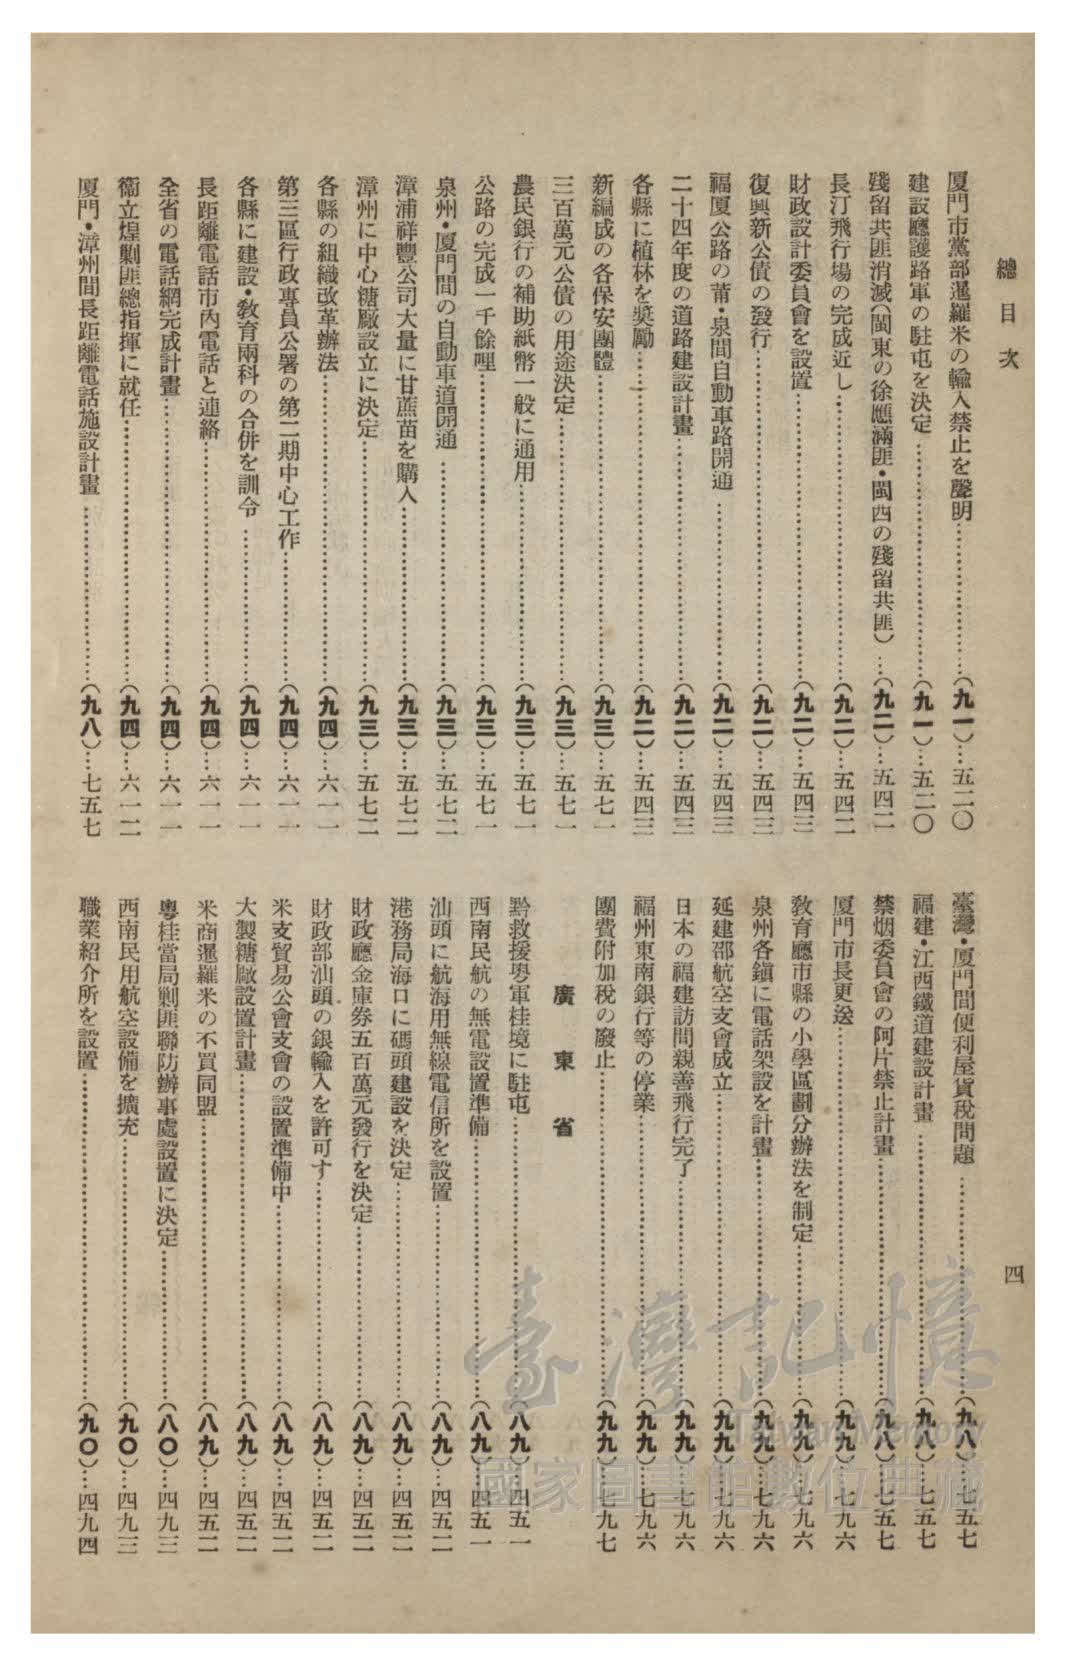 總目次
四
厦門市黨部暹羅米の輸入禁止を聲明……(九一)…五二〇
建設廳護路軍の駐屯を決定……(九一)…五二〇
殘留共匪消滅(閩東の徐應滿匪・閩西の殘留共匪)…(九二)…五四二
長汀飛行場の完成近し……(九二)…五四二
財政設計委員會を設置……(九二)…五四三
復興新公債の發行……(九二)…五四三
福厦公路の莆・泉間自動車路開通……(九二)…五四三
二十四年度の道路建設計畫……(九二)…五四三
各縣に植林を奬勵……(九二)…五四三
新編成の各保安團體……(九三)…五七一
三百萬元公債の用途決定……(九三)…五七一
農民銀行の補助紙幣一般に通用……(九三)…五七一
公路の完成一千餘哩……(九三)…五七一
泉州・厦門間の自動車道開通……(九三)…五七二
漳浦祥豐公司大量に甘蔗苗を購入……(九三)…五七二
漳州に中心糖廠設立に決定……(九三)…五七二
各縣の組織改革辦法……(九四)…六一一
第三區行政專員公署の第二期中心工作……(九四)…六一一
各縣に建設・敎育兩科の合併を訓令……(九四)…六一一
長距離電話市內電話と連絡……(九四)…六一一
全省の電話網完成計畫……(九四)…六一一
衞立煌剿匪總指揮に就任……(九四)…六一二
厦門・漳州間長距離電話施設計畫……(九八)…七五七
臺灣・厦門間便利屋貨稅問題……(九八)…七五七
福建・江西鐵道建設計畫……(九八)…七五七
禁烟委員會の阿片禁止計畫……(九八)…七五七
厦門市長更迭……(九九)…七九六
敎育廳市縣の小學區劃分辦法を制定……(九九)…七九六
泉州各鎭に電話架設を計畫……(九九)…七九六
延建邵航空支會成立……(九九)…七九六
日本の福建訪問親善飛行完了……(九九)…七九六
福州東南銀行等の停業……(九九)…七九六
團費附加稅の廢止……(九九)…七九七
廣東省
黔救援粤軍桂境に駐屯……(八九)…四五一
西南民航の無電設置準備……(八九)…四五一
汕頭に航海用無線電信所を設置……(八九)…四五二
港務局海口に碼頭建設を決定……(八九)…四五二
財政廳金庫券五百萬元發行を決定……(八九)…四五二
財政部汕頭の銀輸入を許可す……(八九)…四五二
米支貿易公會支會の設置準備中……(八九)…四五二
大製糖廠設置計畫……(八九)…四五二
米商暹羅米の不買同盟……(八九)…四五二
粤桂當局剿匪聯防辦事處設置に決定……(八〇)…四九三
西南民用航空設備を擴充……(九〇)…四九三
職業紹介所を設置……(九〇)…四九四
臺灣記憶
Taiwan Memory
國家圖書館數位典藏